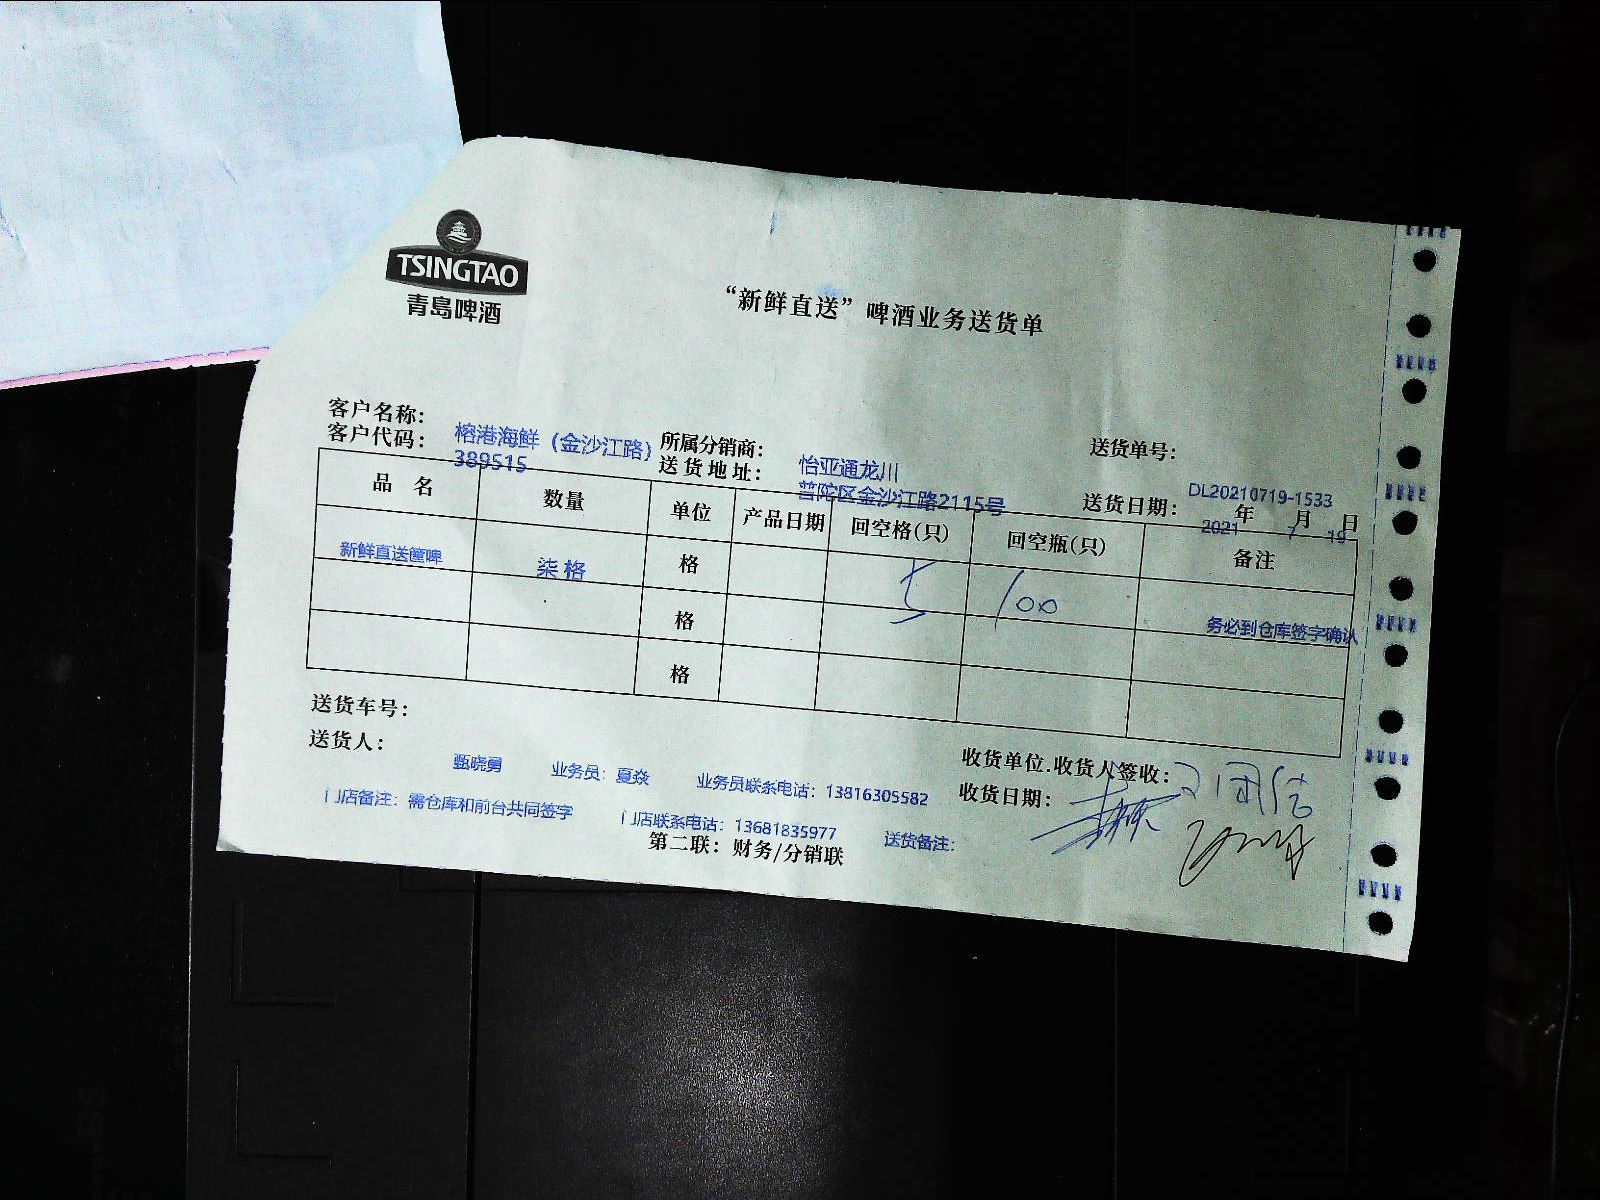 TSINGTAO
青島啤酒
“新鲜直送”啤酒业务送货单
客户名称: 榕港海鲜（金沙江路) 所属分销商: 怡亚通龙川 送货单号: DL20210719-1533
客户代码: 389515 送货地址: 普陀区金沙江路2115号 送货日期: 2021年7月19日
品名 数量 单位 产品日期 回空格(只) 回空瓶(只) 备注
新鲜直送筐啤 柒格 格 100 务必到仓库签字确认
格
格
送货车号:
送货人: 甄晓勇 业务员: 夏焱 业务员联系电话: 13816305582 收货单位.收货人签收:
收货日期:
门店备注: 需仓库和前台共同签字 门店联系电话: 13681835977 送货备注:
第二联: 财务/分销联